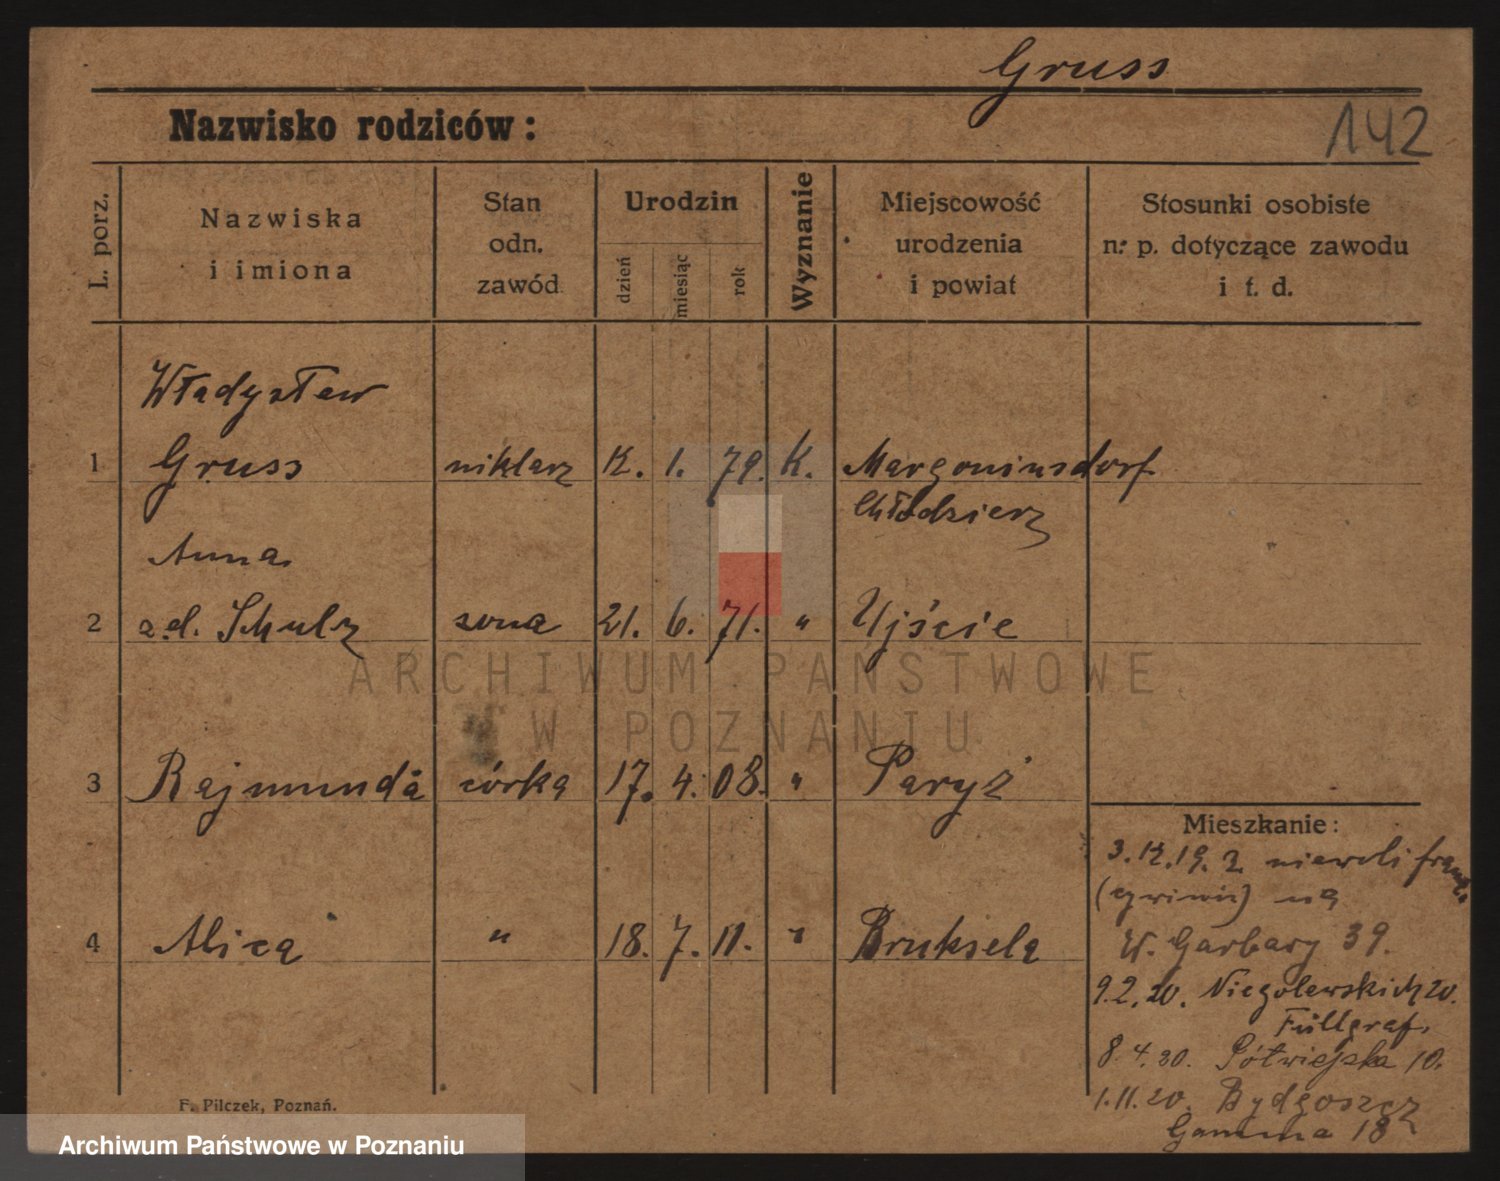 Gruss
Nazwisko rodziców:
142
L. porz.
Nazwiska
i imiona
Stan
odn.
zawód
Urodzin
dzień
miesiąc
rok
Wyznanie
Miejscowość
urodzenia
i powiat
Stosunki osobiste
n. p. dotyczące zawodu
i t. d.
Władysław
1 Gruss niklarz 12. 1. 79. K. Margoninsdorf
Chłodzierz
Anna
2 z d. Schulz żona 21. 6. 71. " Ujście
ARCHIWUM PAŃSTWOWE
W POZNANIU
3 Rajmunda córka 17. 4. 08. " Paryż
4 Alica " 18. 7. 11. " Bruksela
Mieszkanie:
3.12.19. z niewoli franc.
(cywilni) na
W. Garbary 39.
9.2.20. Niegolewskich 20.
Füllgraf.
8.4.20. Półwiejska 10.
1.11.20. Bydgoszcz
Gamma 18
F. Pilczek, Poznań.
Archiwum Państwowe w Poznaniu